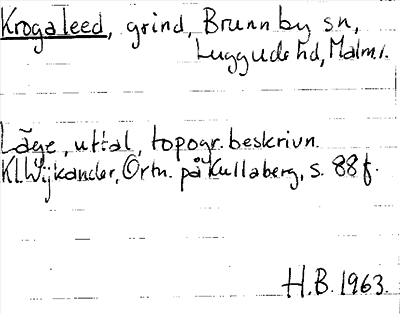 Krogaleed, grind, Brunnby sn,
Luggude hd, Malm.l.
Läge, uttal, topogr. beskrivn.
Kl. Wijkander, Ortn. på Kullaberg, s. 88 f.
H.B. 1963.